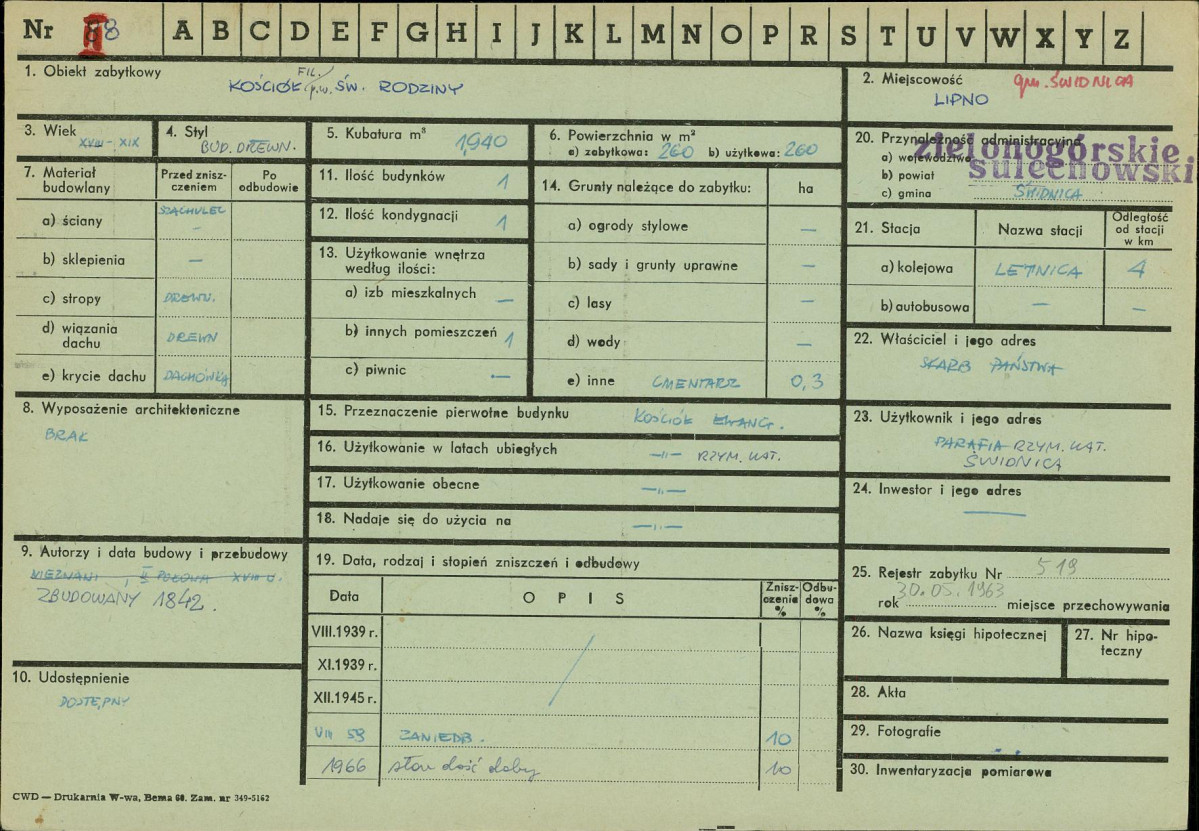 Nr 88 A B C D E F G H I J K L M N O P R S T U V W X Y Z
1. Obiekt zabytkowy
KOŚCIÓŁ FIL. p.w. ŚW. RODZINY
2. Miejscowość gm. ŚWIDNICA
LIPNO
3. Wiek
XVIII - XIX
4. Styl
BUD. DREWN.
5. Kubatura m³
1,940
6. Powierzchnia w m²
a) zabytkowa: 260 b) użytkowa: 260
7. Materiał budowlany
Przed zniszczeniem
Po odbudowie
a) ściany SZACHULEC
–
b) sklepienia —
c) stropy DREWN.
d) wiązania dachu DREWN
e) krycie dachu DACHÓWKA
8. Wyposażenie architektoniczne
BRAK
9. Autorzy i data budowy i przebudowy
NIEZNANI, II POŁOWA XVIII W.
ZBUDOWANY 1842.
10. Udostępnienie
DOSTĘPNY
11. Ilość budynków 1
12. Ilość kondygnacji 1
13. Użytkowanie wnętrza według ilości:
a) izb mieszkalnych —
b) innych pomieszczeń 1
c) piwnic —
14. Grunty należące do zabytku: ha
a) ogrody stylowe —
b) sady i grunty uprawne —
c) lasy —
d) wody —
e) inne CMENTARZ 0,3
15. Przeznaczenie pierwotne budynku KOŚCIÓŁ EWANG.
16. Użytkowanie w latach ubiegłych —"— RZYM. KAT.
17. Użytkowanie obecne —"—
18. Nadaje się do użycia na —"—
19. Data, rodzaj i stopień zniszczeń i odbudowy
Data OPIS Zniszczenie % Odbudowa %
VIII.1939 r.
XI.1939 r.
XII.1945 r.
VIII 59 ZANIEDB. 10
1966 stan dość dobry 10
20. Przynależność administracyjna
a) województwo zielonogórskie
b) powiat sulechowski
c) gmina ŚWIDNICA
21. Stacja Nazwa stacji Odległość od stacji w km
a) kolejowa LETNICA 4
b) autobusowa — —
22. Właściciel i jego adres
SKARB PAŃSTWA
23. Użytkownik i jego adres
PARAFIA RZYM. KAT.
ŚWIDNICA
24. Inwestor i jego adres
—
25. Rejestr zabytku Nr 519
30.05.1963
rok miejsce przechowywania
26. Nazwa księgi hipotecznej
27. Nr hipoteczny
28. Akta
29. Fotografie
30. Inwentaryzacja pomiarowa
CWD — Drukarnia W-wa, Bema 60. Zam. nr 349-5162